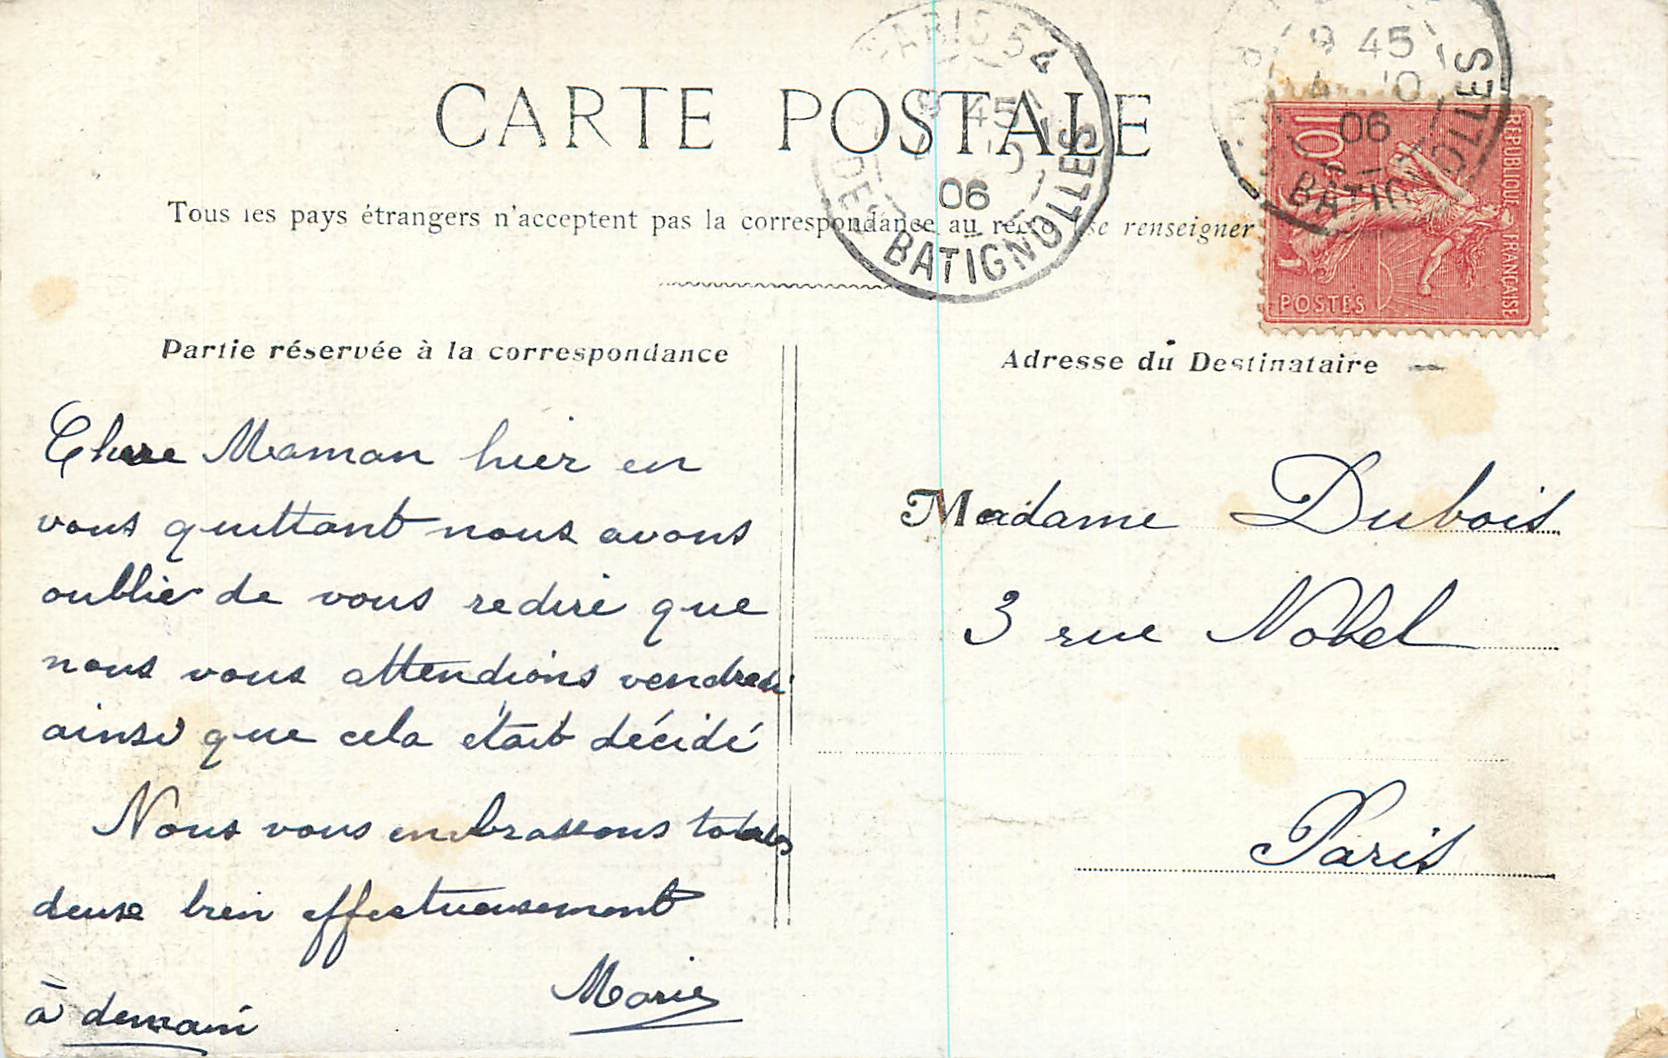 CARTE POSTALE
Tous les pays étrangers n'acceptent pas la correspondance au recto (se renseigner
PARIS 54
9 45
06
DES BATIGNOLLES
9 45
4 10
06
BATIGNOLLES
10c
REPUBLIQUE FRANÇAISE
POSTES
Partie réservée à la correspondance
Chere Maman hier en
vous quittant nous avons
oublié de vous redire que
nous vous attendions vendredi
ainsi que cela était décidé
Nous vous embrassons toutes
deux bien effectueusement
Marie
à demain
Adresse du Destinataire
Madame Dubois
3 rue Nobel
Paris